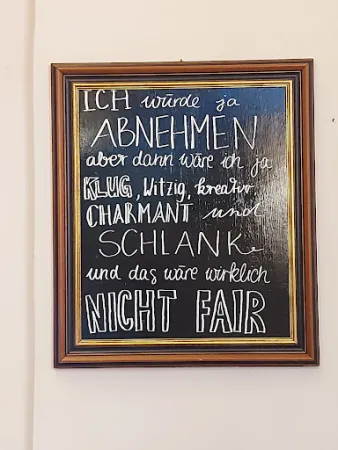 ICH würde ja
ABNEHMEN
aber dann wäre ich ja
KLUG, witzig, kreativ,
CHARMANT und
SCHLANK
und das wäre wirklich
NICHT FAIR